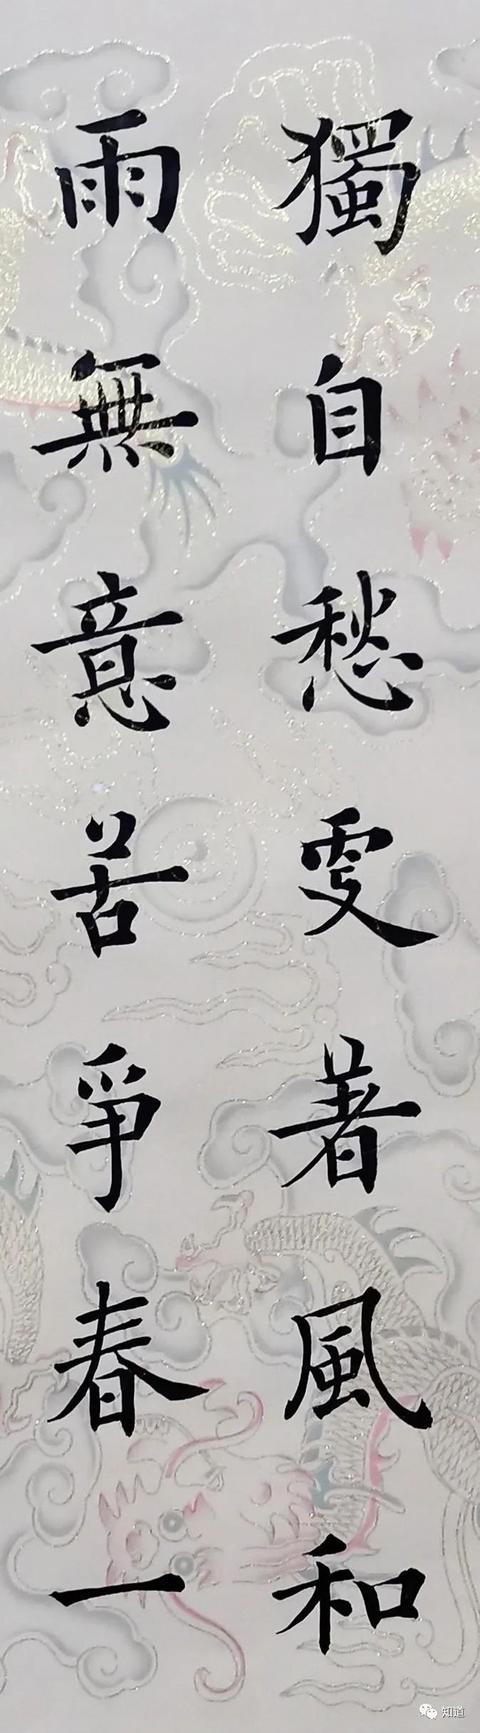 獨自愁更著風和
雨無意苦爭春一
知道